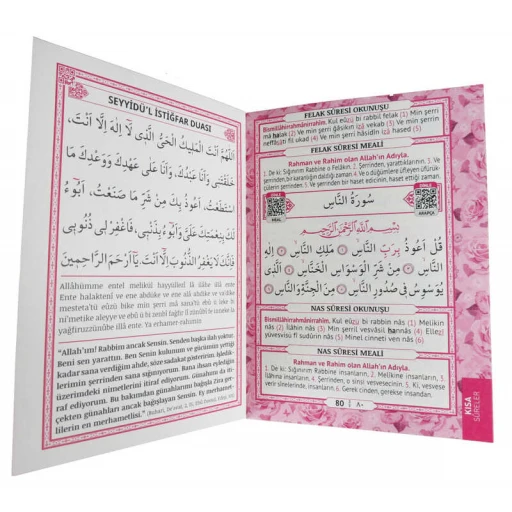 SEYYİDÜ'L İSTİĞFAR DUASI
اَللّٰهُمَّ اَنْتَ الْمَلِيكُ الْحَيُّ الَّذِي لَٓا اِلٰهَ اِلَّا اَنْتَ،
خَلَقْتَنِي وَاَنَا عَبْدُكَ، وَاَنَا عَلَى عَهْدِكَ وَوَعْدِكَ مَا
اسْتَطَعْتُ، اَعُوذُ بِكَ مِنْ شَرِّ مَا صَنَعْتُ، اَبُوءُ
لَكَ بِنِعْمَتِكَ عَلَيَّ وَاَبُوءُ بِذَنْبِي، فَاغْفِرْ لِي ذُنُوبِي
فَاِنَّكَ لَا يَغْفِرُ الذُّنُوبَ اِلَّا اَنْتَ. يَا اَرْحَمَ الرَّاحِمِينَ
Allâhümme entel melikül hayyüllezî lâ ilâhe illâ
Ente halaktenî ve ene abdüke ve ene alâ ahdike ve va'dike
mesteta'tü eûzü bike min şerri mâ sana'tü ebû ü leke bi
ni'metike aleyye ve ebû ü bi zenbî fağfir lî zünûbî fe innehu lâ
yağfiruzzünûbe illâ ente. Ya erhamer-rahimin
"Allah'ım! Rabbim ancak Sensin. Senden başka ilah yoktur.
Beni sen yarattın. Ben Senin kulunum ve gücümün yettiği
kadar sana verdiğim ahde, söze sadakat gösteririm. İşledik-
lerimin şerrinden sana sığınırım. Bana ihsan eylediğin
üzerimdeki nimetlerini itiraf ediyorum. Günahımı da iti-
raf ediyorum. Bu bakımından günahlarımı bağışla Zira ger-
çekten günahları ancak bağışlayan Sensin. Ey merhamet-
lilerin en merhametlisi."
FELAK SÛRESİ OKUNUŞU
Bismillâhirrahmânirrahîm. Kul eûzü bi rabbil felak (1) Min şerri
mâ halak (2) Ve min şerri ğâsikın izâ vekab (3) Ve min şerrin
neffâsâti fil ukad (4) Ve min şerri hâsidin izâ hased (5)
FELAK SÛRESİ MEALİ
Rahman ve Rahim olan Allah'ın Adıyla.
سُورَةُ النَّاسِ
DİNLE
MEAL
DİNLE
ARAPÇA
بِسْمِ اللّٰهِ الرَّحْمٰنِ الرَّحِيمِ
قُلْ اَعُوذُ بِرَبِّ النَّاسِ ۝ مَلِكِ النَّاسِ ۝ اِلٰهِ
النَّاسِ ۝ مِنْ شَرِّ الْوَسْوَاسِ الْخَنَّاسِ ۝ اَلَّذِي
يُوَسْوِسُ فِي صُدُورِ النَّاسِ ۝ مِنَ الْجِنَّةِ وَالنَّاسِ ۝
NAS SÛRESİ OKUNUŞU
Bismillâhirrahmânirrahîm. Kul eûzü bi rabbin nâs (1) Melikin
nâs (2) İlâhin nâs (3) Min şerril vesvâsil hannâs (4) Ellezî
yüvesvisu fî sudûrin nâs (5) Minel cinneti ven nâs (6)
NAS SÛRESİ MEALİ
Rahman ve Rahim olan Allah'ın Adıyla.
1. De ki: Sığınırım Rabbine o insanların. 2. Melikine insanların. 3.
İlâhına insanların. 4. Şerrinden, o sinsi vesvesecinin. 5. Ki, vesvese
verir sinelerinde, insanların. 6. Gerek cinden, gerekse insandan.
80 ٨٠
KISA
SÛRELER